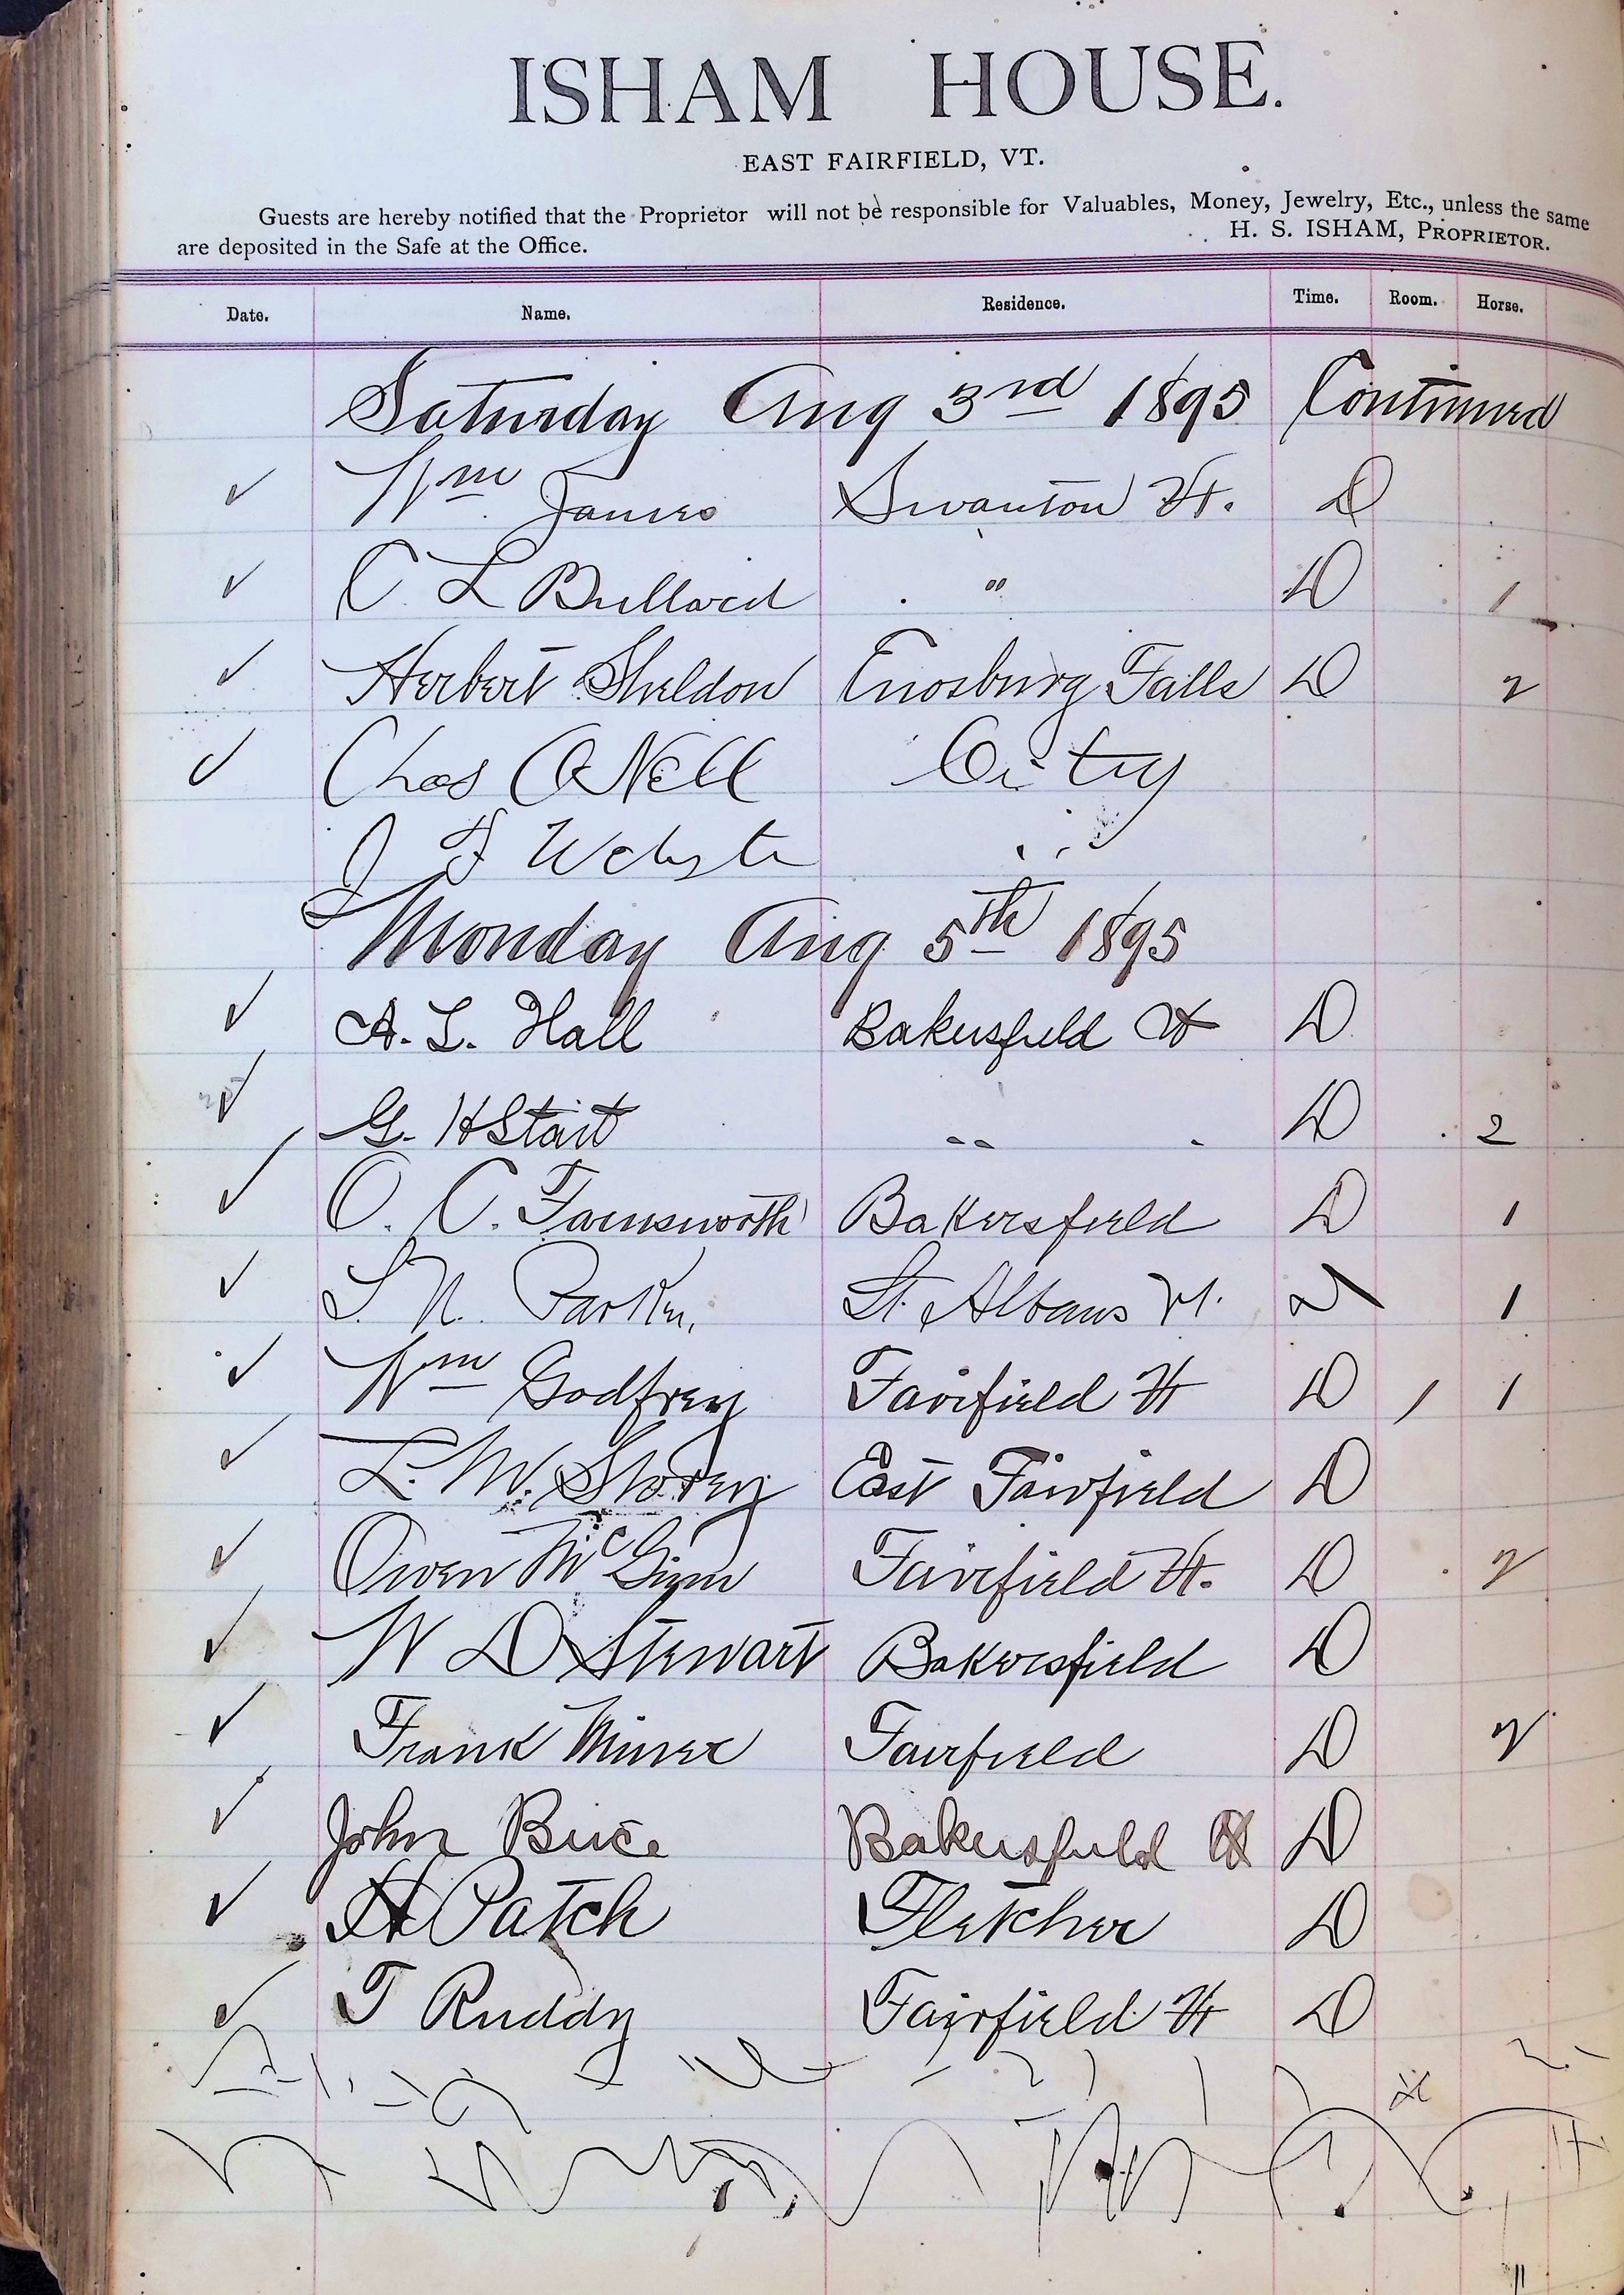 ISHAM HOUSE.
EAST FAIRFIELD, VT.
Guests are hereby notified that the Proprietor will not be responsible for Valuables, Money, Jewelry, Etc., unless the same
are deposited in the Safe at the Office. H. S. ISHAM, PROPRIETOR.
Date. Name. Residence. Time. Room. Horse.
Saturday Aug 3rd 1895 Continued
✓ Wm James Swanton Vt. D
✓ C. L Bullard " D 1
✓ Herbert Sheldon Enosburg Falls D 2
✓ Chas O'Neil City
J F Webster "
Monday Aug 5th 1895
✓ A. L. Hall Bakersfield Vt D
✓ G. H Start " D 2
✓ O. C. Farnsworth Bakersfield D 1
✓ S. N. Parker, St. Albans Vt. 1
✓ Wm Godfrey Fairfield Vt D 1 1
✓ L. M. Storey East Fairfield D
✓ Owen McGinn Fairfield Vt. D 2
✓ W D Stewart Bakersfield D
✓ Frank Miner Fairfield D 2
✓ John Brice Bakersfield Vt D
✓ H Patch Fletcher D
✓ T Ruddy Fairfield Vt D